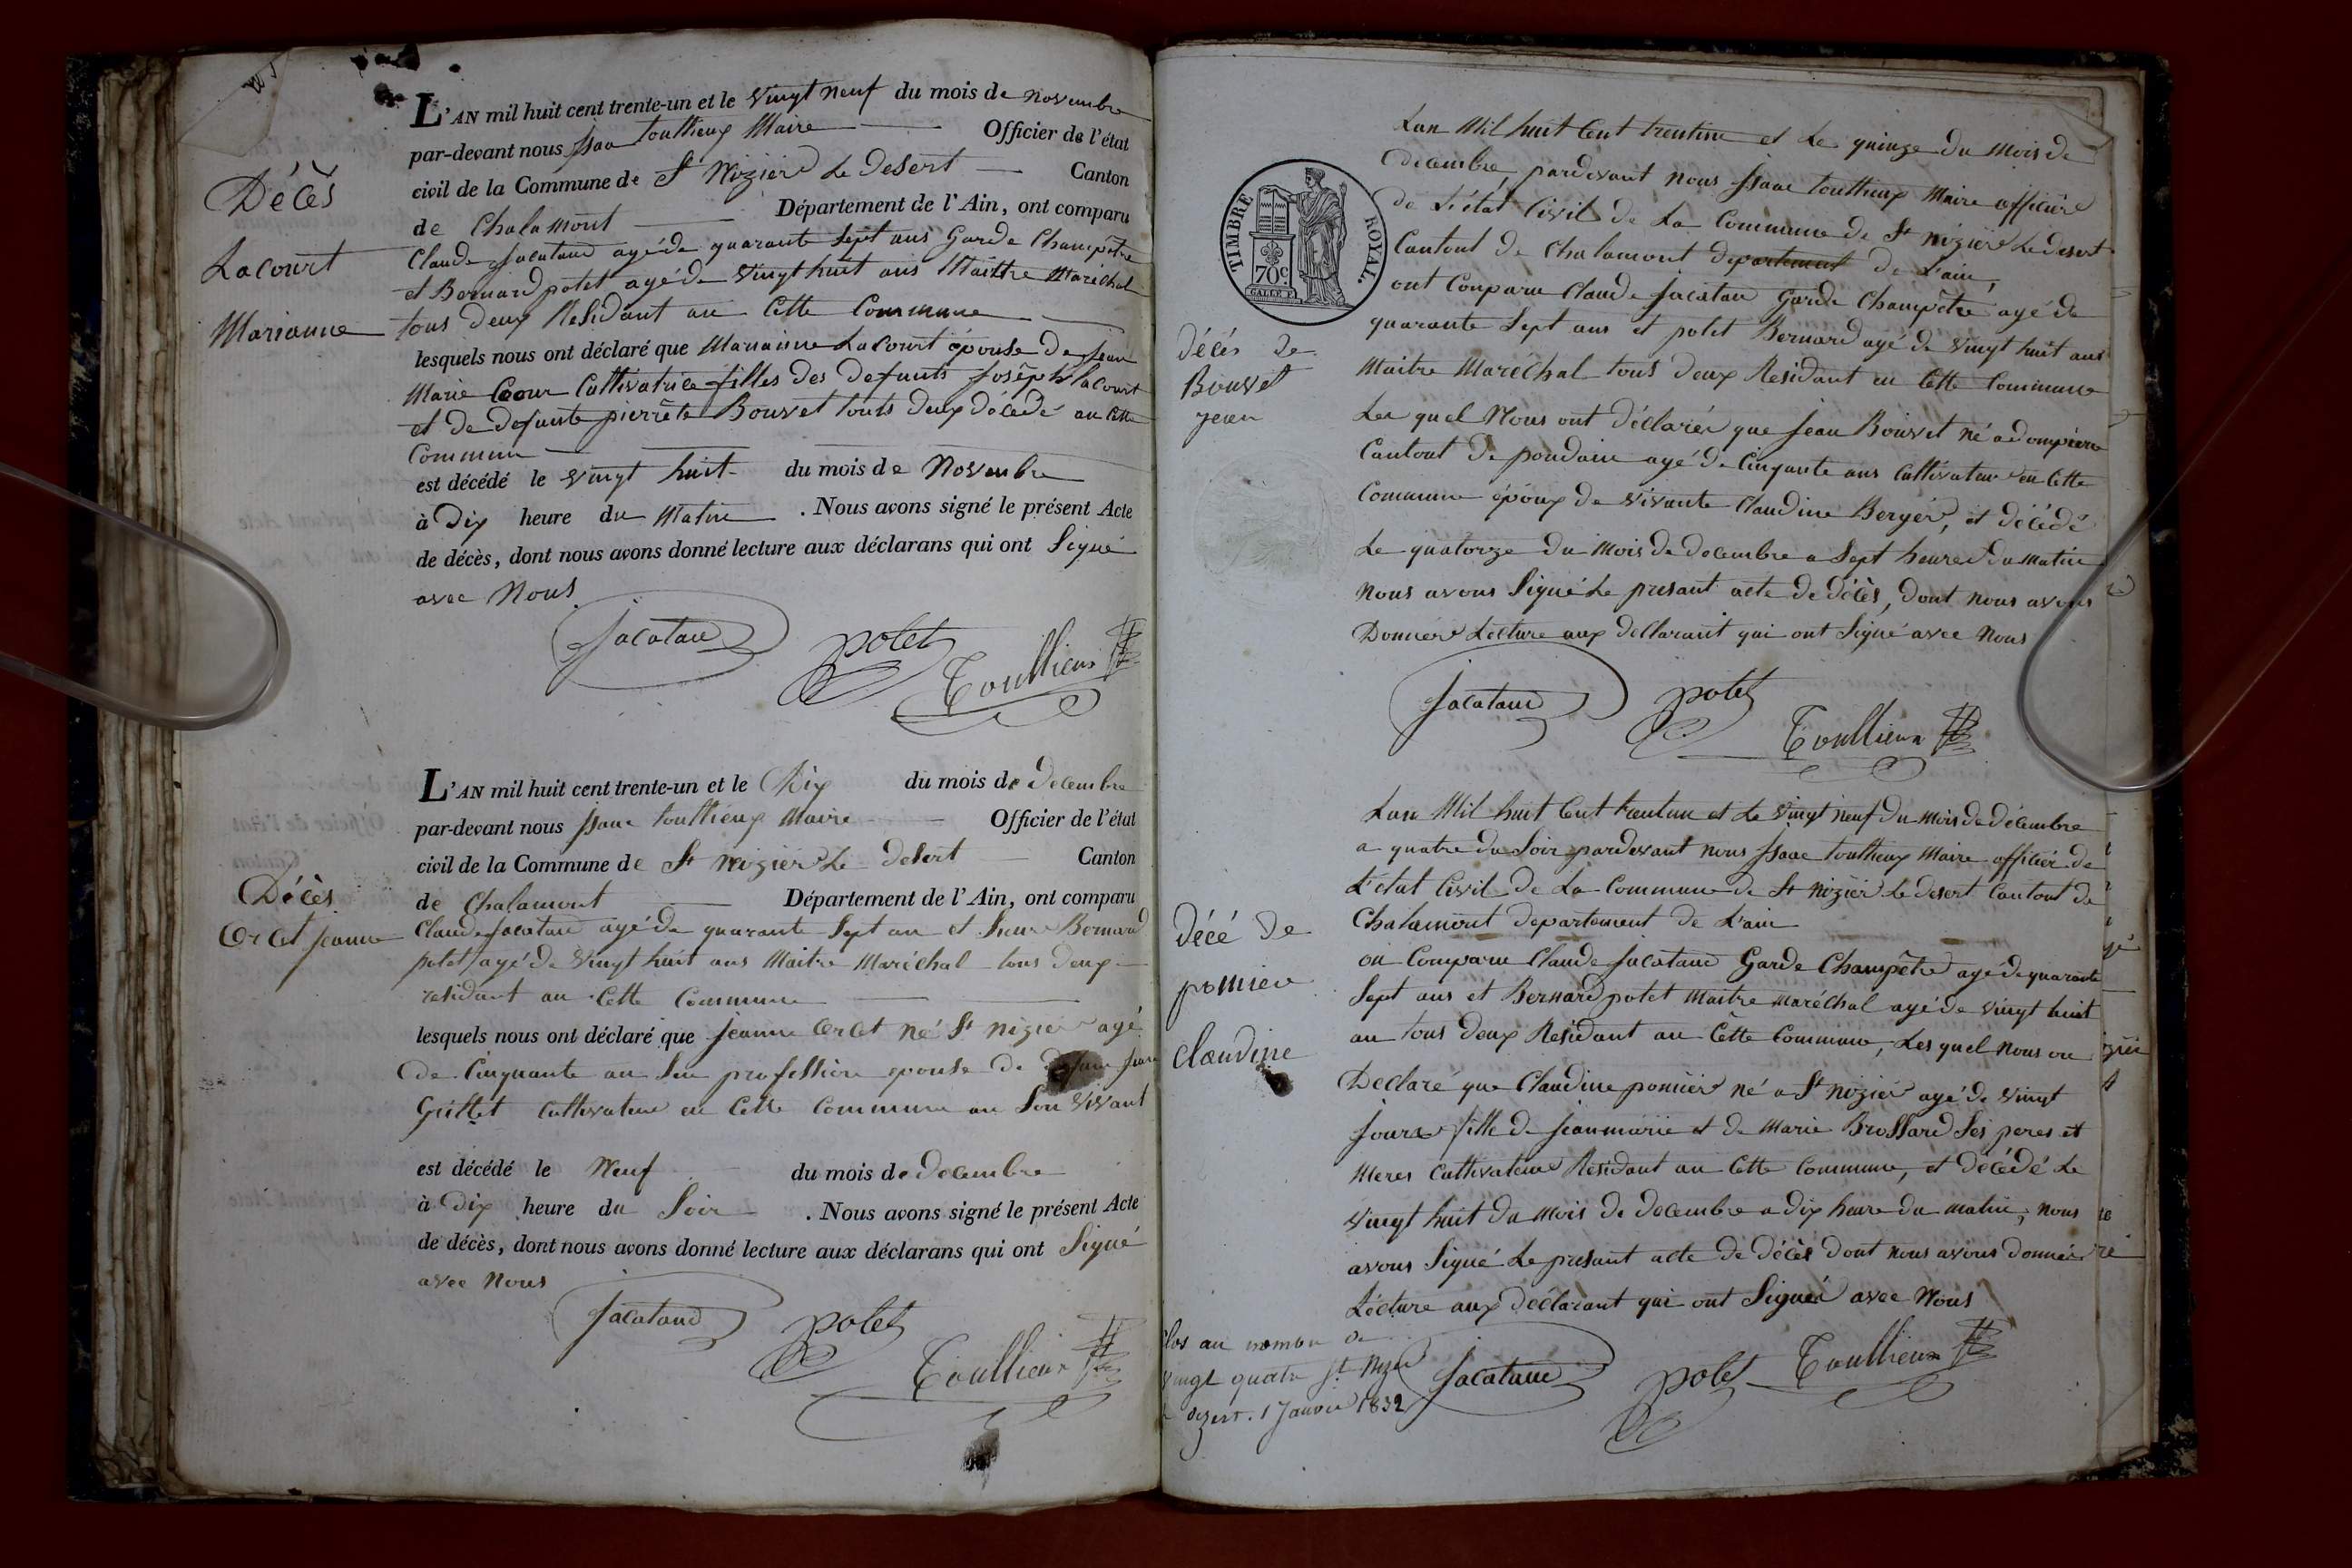 L'AN mil huit cent trente-un et le vingt neuf du mois de novembre
par-devant nous Isaac toullieux Maire Officier de l'état
civil de la Commune de St Nizier Le Desert Canton
de Chalamont Département de l'Ain, ont comparu
Claude Jacataud agé de quarante Sept ans Garde Champêtre
et Bernard polet agé de vingt huit ans Maittre Maréchal
tous deux Residant au Cette Commune
lesquels nous ont déclaré que Marianne Lacourt épouse de Jean
Marie Cultivatrice filles des defunts Joséph lacourt
et de defunte pierrète Bouvet touts deux décedé au Cette
Commune
est décédé le vingt huit du mois de Novembre
à Dix heure du Matin . Nous avons signé le présent Acte
de décès, dont nous avons donné lecture aux déclarans qui ont Signé
avec Nous
Décès
Lacourt
Marianne
Jacataud polet Toullieux
L'AN mil huit cent trente-un et le Dix du mois de Decembre
par-devant nous Isaac toullieux Maire Officier de l'état
civil de la Commune de St nizier Le desert Canton
de Chalamont Département de l'Ain, ont comparu
Claude Jacataud agé de quarante Sept an et Bernard
polet agé de vingt huit ans Maitre Maréchal tous deux
residant au Cette Commune
lesquels nous ont déclaré que Jeanne Cercet né St nizier agé
de Cinquante an profession epouse de Jean
Guillet Cultivateur en Cette Commune au Son vivant
est décédé le Neuf du mois de decembre
à Dix heure du Soir . Nous avons signé le présent Acte
de décès, dont nous avons donné lecture aux déclarans qui ont Signé
avec Nous
Décès
Cercet Jeanne
Jacataud polet Toullieux
TIMBRE ROYAL.
70c
Lan Mil huit Cent trentun et Le quinze du Mois de
decembre, pardevant nous Isaac toullieux Maire officier
de L'état Civil de La Commune de St nizier Le desert
Cantont de Chalamont departement de L'ain,
ont Comparu Claude Jacataud Garde Champêtre agé de
quarante Sept ans et polet Bernard agé de vingt huit ans
Maitre Maréchal tous deux Residant en Cette Commune
Les quel Nous ont déclarér que Jean Bouvet né a dompierre
Cantont de pondain agé de Cinquante ans Cultivateur en Cette
Commune époux de vivante Claudine Berger, et décédé
Le quatorze du Mois de decembre a Sept heures du Matin
nous avons Signé Le presant acte de décès, dont nous avons
Donnér Lecture aux declarant qui ont Signé avec Nous
décés de
Bouvet
jean
Jacataud polet Toullieux
Lan Mil huit Cent trentun et Le vingt neuf du Mois de décembre
a quatre du Soir pardevant nous Isaac toullieux Maire officier de
L'état Civil de La Commune de St nizier Le desert Cantont de
Chalamont departement de L'ain
on Comparu Claude Jacataud Garde Champêtre agé de quarante
Sept ans et Bernard polet Maitre maréchal agé de vingt huit
an tous deux Residant au Cette Commune, Les quel Nous on
Declaré que Claudine pomier né a St nizier agé de vingt
Jours fille de Jeanmarie et de Marie Brossard Ses peres et
Meres Cultivateur Residant au Cette Commune, et décédé Le
vingt huit du Mois de decembre a dix heure du matin, nous
avons Signé Le presant acte de décès dont nous avons donnér
Lécture aux declarant qui ont Signér avec Nous
décé de
pomier
claudine
Jacataud polet Toullieux
Clos au nombre de
vingt quatre St. Nizier
dezert. 1 Janvier 1832